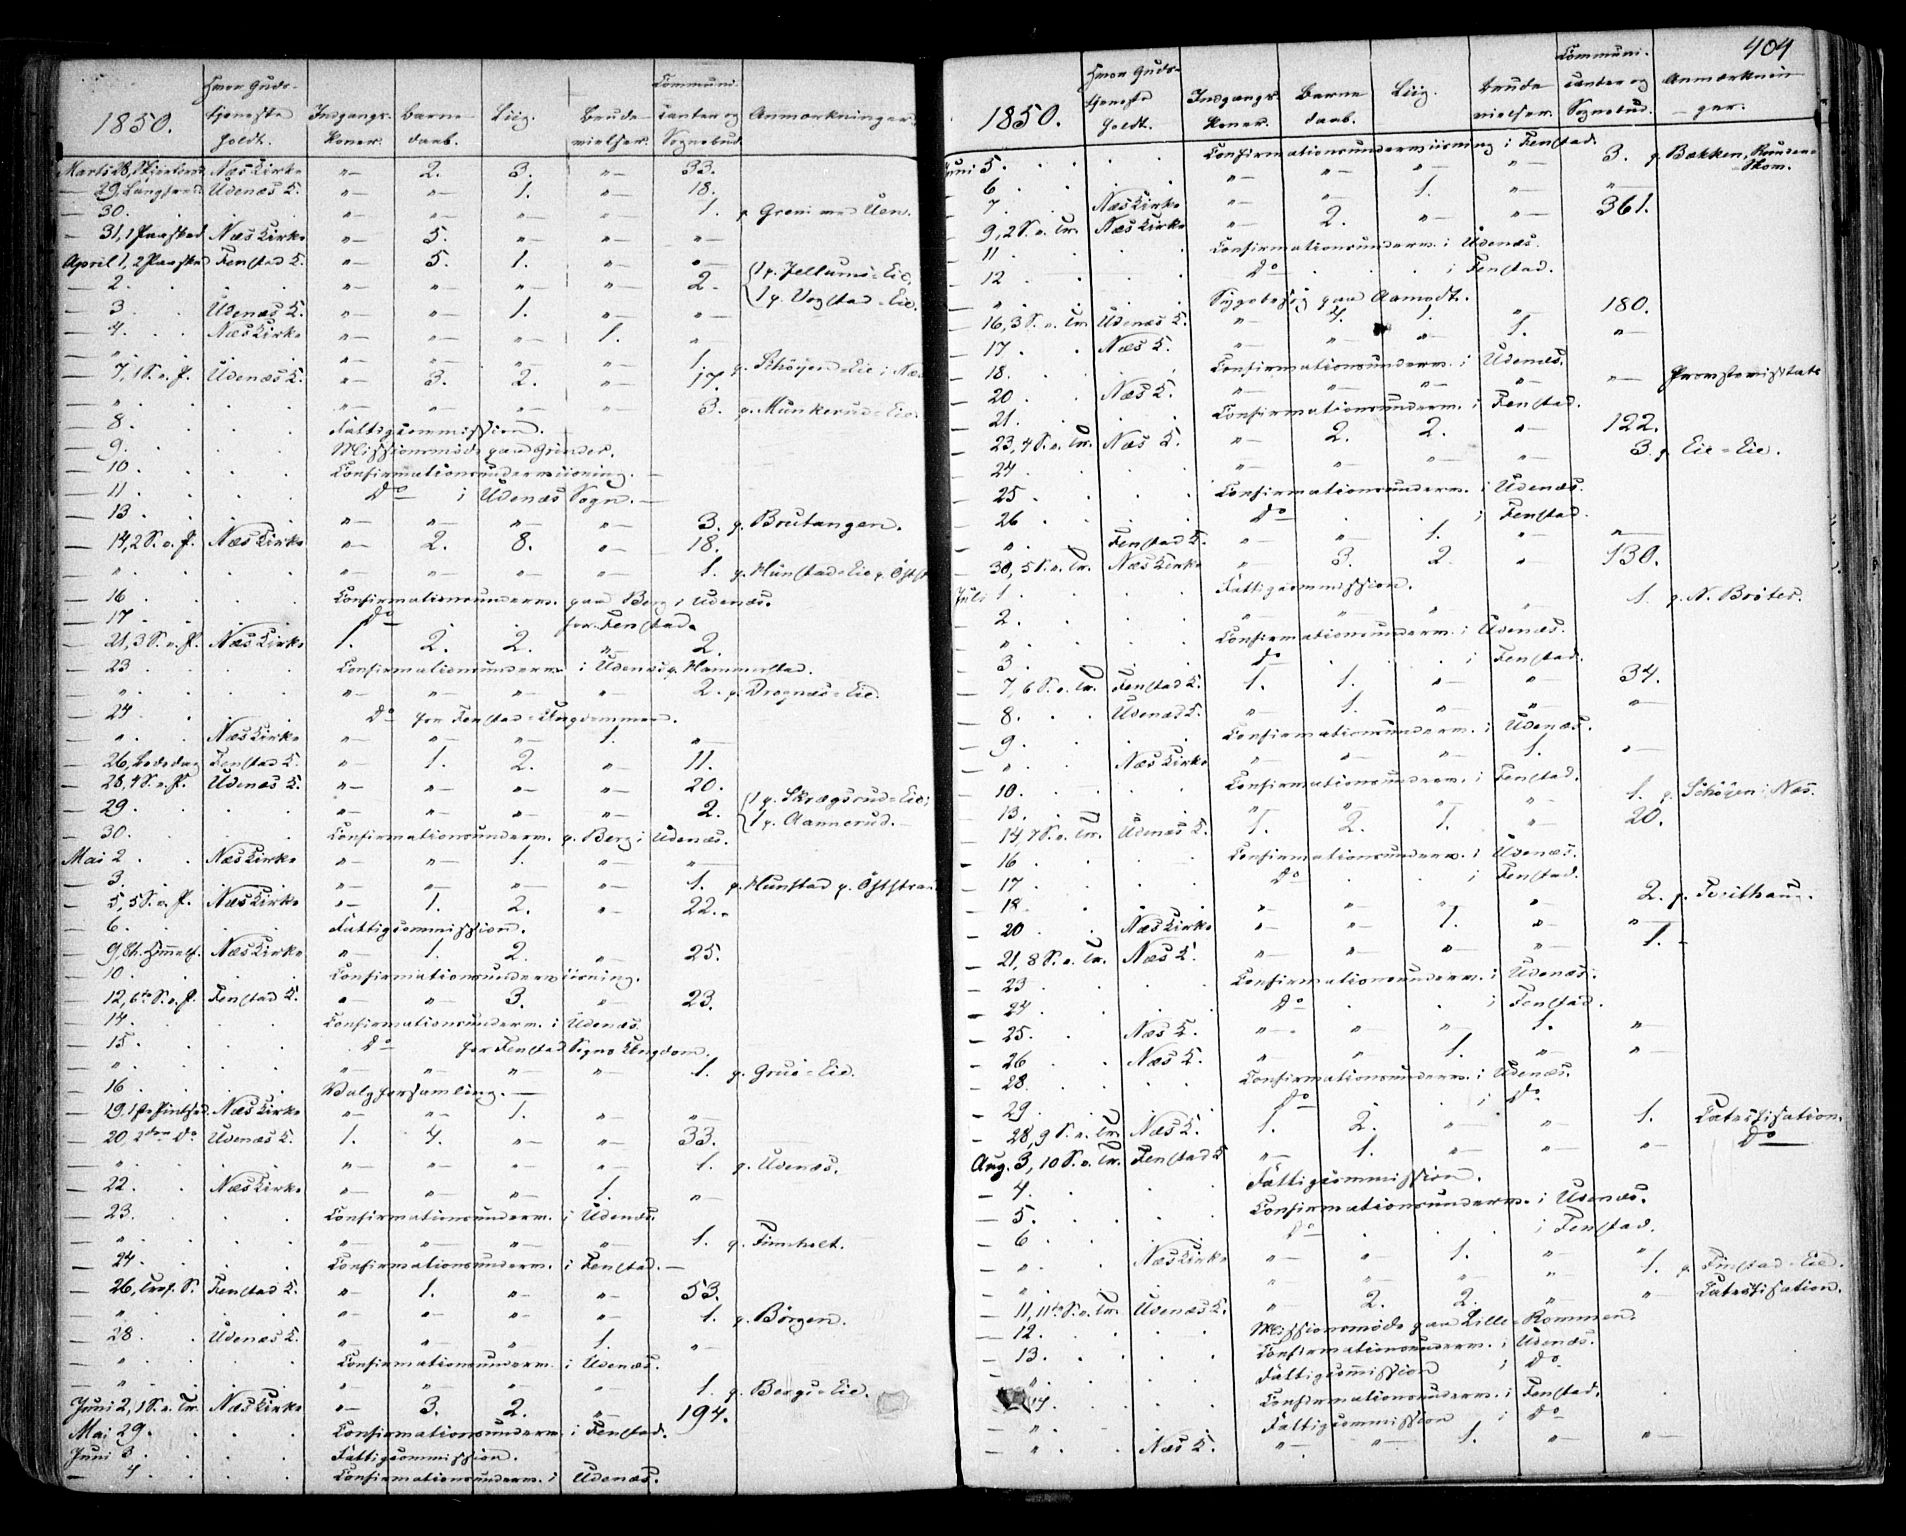 1850.
Hvor Guds-
tjeneste
holdt.
Indgangs-
koner.
Barne
daab.
Liig.
Brude
vielser.
Communi
canter og
Sognebud.
Anmærkninger.
Marts 28, Skjærtorsd. Næs Kirke "— 2. 3. "— 33.
— 29, Langfred. Udenæs K. "— "— 1. "— 18.
— 30. . . "— "— "— "— 1.
— 31, 1 Paaskед. Næs Kirke "— 5. "— "— "—
April 1, 2 Paasked. Fenstad K. "— 5. 1. "— "—
— 2. . . "— "— "— "— 2. {1 p. Jellums-Eie. {1 p. Vogstad-Eie.
— 3 . Udenæs K. "— "— 1. "— "—
— 4. . Næs Kirke "— "— "— 1. "
— ". . . "— "— "— "— 1. p. Schøyen-Eie i Næs
— 7, 1 S. e. P. Udenæs K. "— 3. 2. "— 17.
— ". . . "— "— "— "— 3. p. Munkerud-Eie.
— 8. . . Fattigcommission.
— 9. . . Missionsmøde paa Grinder.
— 10. . . Confirmationsunderviisning.
— 11. . . Do i Udenæs Sogn.
— 13. . . "— "— "— "— 3. p. Brutangen.
— 14, 2 S. e. P. Næs Kirke "— 2. 8. "— 18.
— ". . . "— "— "— "— 1. p. Hunstad-Eie p. Østst
— 16 . . Confirmationsunderv. paa Berg i Udenæs.
— 17. . . Do . for Fenstad.
— 21, 3 S. e. P. Næs Kirke 1. 2. 2. "— 2.
— 23 . . Confirmationsunderv. i Udenæs p. Hammerstad.
— ". . . "— "— "— "— 2. p. Dragnæs-Eie.
— 24 . . Do for Fenstad-Ungdommen.
— ". . Næs Kirke "— "— "— 1. "—
— 26, Bededag Fenstad K. "— 1. 2. "— 11.
— 28, 4 S. e. P. Udenæs K. "— "— "— "— 20.
— 29 . . "— "— "— "— 2. {1 p. Skragsrud-Eie; {1 p. Aannerud.
— 30. . . Confirmationsunderv. p. Berg i Udenæs.
Mai 2 . . Næs Kirke "— "— 1. "— "—
— 3. . . "— "— "— "— 1. p. Hunstad p. Øststran
— 5, 5 S. e. P. Næs Kirke "— 1. 2. "— 22.
— 6. . . Fattigcommission.
— 9, Ch. Himmelf. Næs Kirke "— 1. 2. "— 25.
— 10. . . Confirmationsunderviisning.
— 12, 6te S. e. P. Fenstad K. "— "— 3. "— 23.
— 14. . . Confirmationsunderv. i Udenæs.
— 15. . . Do for Fenstad Sogns Ungdom.
— ". . . "— "— "— "— 1. p. Grue-Eie.
— 16 . . Valgforsamling.
— 19, 1ste Pintsed. Næs Kirke "— "— 1. "— "—
— 20, 2den Do Udenæs K. 1. 4. "— "— 33.
— ". . . "— "— "— "— 1. p. Udenæs.
— 22. . Næs Kirke "— "— "— 1. "—
— 23. . . Confirmationsunderv. i Udenæs.
— ". . . "— "— "— "— 1. p. Finholt.
— 24. . . Confirmationsunderv. i Fenstad.
— 26, Tref. S. Fenstad K. "— 1. "— "— 53.
— ". . . "— "— "— "— 1. p. Børgen.
— 28. . Udenæs K. "— "— "— 1. "—
— ". . . Confirmationsunderv. i Udenæs.
— ". . . "— "— "— "— 1. p. Bergs-Eie.
Juni 2, 1 S. e. Tr. Næs Kirke "— 3. 2. "— 194.
Mai 29. . . Confirmationsunderv. i Fenstad.
Juni 3. . . Fattigcommission.
— 4. . . Confirmationsunderv. i Udenæs.
404
1850.
Hvor Guds-
tjeneste
holdt.
Indgangs-
koner.
Barne
daab.
Liig.
Brude
vielser.
Communi-
canter og
Sognebud.
Anmærknin
-ger.
Juni 5. . . Confirmationsunderviisning i Fenstad.
— 6 . . "— "— "— "— 3. p. Bækken,
— 7. . Næs Kirke "— "— 1. "— "—
— 9, 2 S. e. Tr. Næs Kirke "— 2. "— "— 361.
— 11 . . Confirmationsunderv. i Udenæs.
— 12 . . Do . . i Fenstad.
— ". . . Sygebesøg paa Aamodt.
— 16, 3 S. e. Tr. Udenæs K. "— 4. 1. "— 180.
— 17. . Næs K. "— "— "— 1. "—
— 18. . . Confirmationsunderv. i Udenæs.
— 20 . Næs K. "— "— "— "— "— Provstevisitats
— 21. . . Confirmationsunderv. i Fenstad.
— 23, 4 S. e. Tr. Næs K. "— 2. 2. "— 122.
— 24 . . "— "— "— "— 3. p. Eie-Eie.
— 25 . . Confirmationsunderv. i Udenæs.
— 26 . . Do . . i Fenstad.
— ". . Fenstad K. "— "— 1. "— "—
— 30, 5 S. e. Tr. Næs Kirke "— 3. 2. "— 130.
Juli 1. . . Fattigcommission.
— 2. . . " " " " 1. p. N. Brøter.
— ". . . Confirmationsunderv. i Udenæs.
— 3. . . Do . . i Fenstad.
— 7, 6 S. e. Tr. Fenstad K. 1. 1. "— "— 34.
— 8. . Udenæs K. "— 1. "— "— "—
— 9. . . Confirmationsunderv. i Udenæs.
— ". . Næs Kirke "— "— "— 1. "—
— 10. . . Confirmationsunderv. i Fenstad.
— 13. . . "— "— "— "— 1. p. Schøyen i Næs.
— 14, 7 S. e. Tr. Udenæs K. 1. 2. 1. "— 20.
— 16 . . Confirmationsunderv. i Udenæs.
— 17 . . Do . . i Fenstad.
— 18. . . "— "— "— "— 2. p.
— 20 . Næs Kirke "— "— 1. "— "—
— 21, 8 S. e. Tr. Næs K. "— "— "— "— 1.
— 23 . . Confirmationsunderv. i Udenæs.
— 24. . . Do . . i Fenstad.
— 25. . Næs K. "— "— "— 1. "—
— 26 . Næs K. "— "— 1. "— "—
— 28. . . Confirmationsunderv. i Udenæs.
— 29. . . Do . . i Do.
— 28, 9 S. e. Tr. Næs K. 1. 2. "— "— 1. Catechisation.
Aug. 3, 10 S. e. Tr. Fenstad K "— 1. "— "— "— Do
— 4. . . Fattigcommission.
— 5. . . Confirmationsunderv. i Udenæs.
— 6 . . Do . . i Fenstad.
— ". . Næs Kirke "— "— 1. "— "
— ". . . "— "— "— "— 1. p. Finstad-Eie.
— 11, 11te S. e. Tr. Udenæs K. "— 2. 2. "— "— Catechisation.
— 12. . . Missionsmøde paa Lille-Rommen.
— 13. . . Confirmationsunderv. i Udenæs.
— ". . . Fattigcommission i Do.
— 14. . . Confirmationsunderv. i Fenstad.
— ". . . Fattigcommission i Do
— ". . Næs K. "— "— 1. "— "—